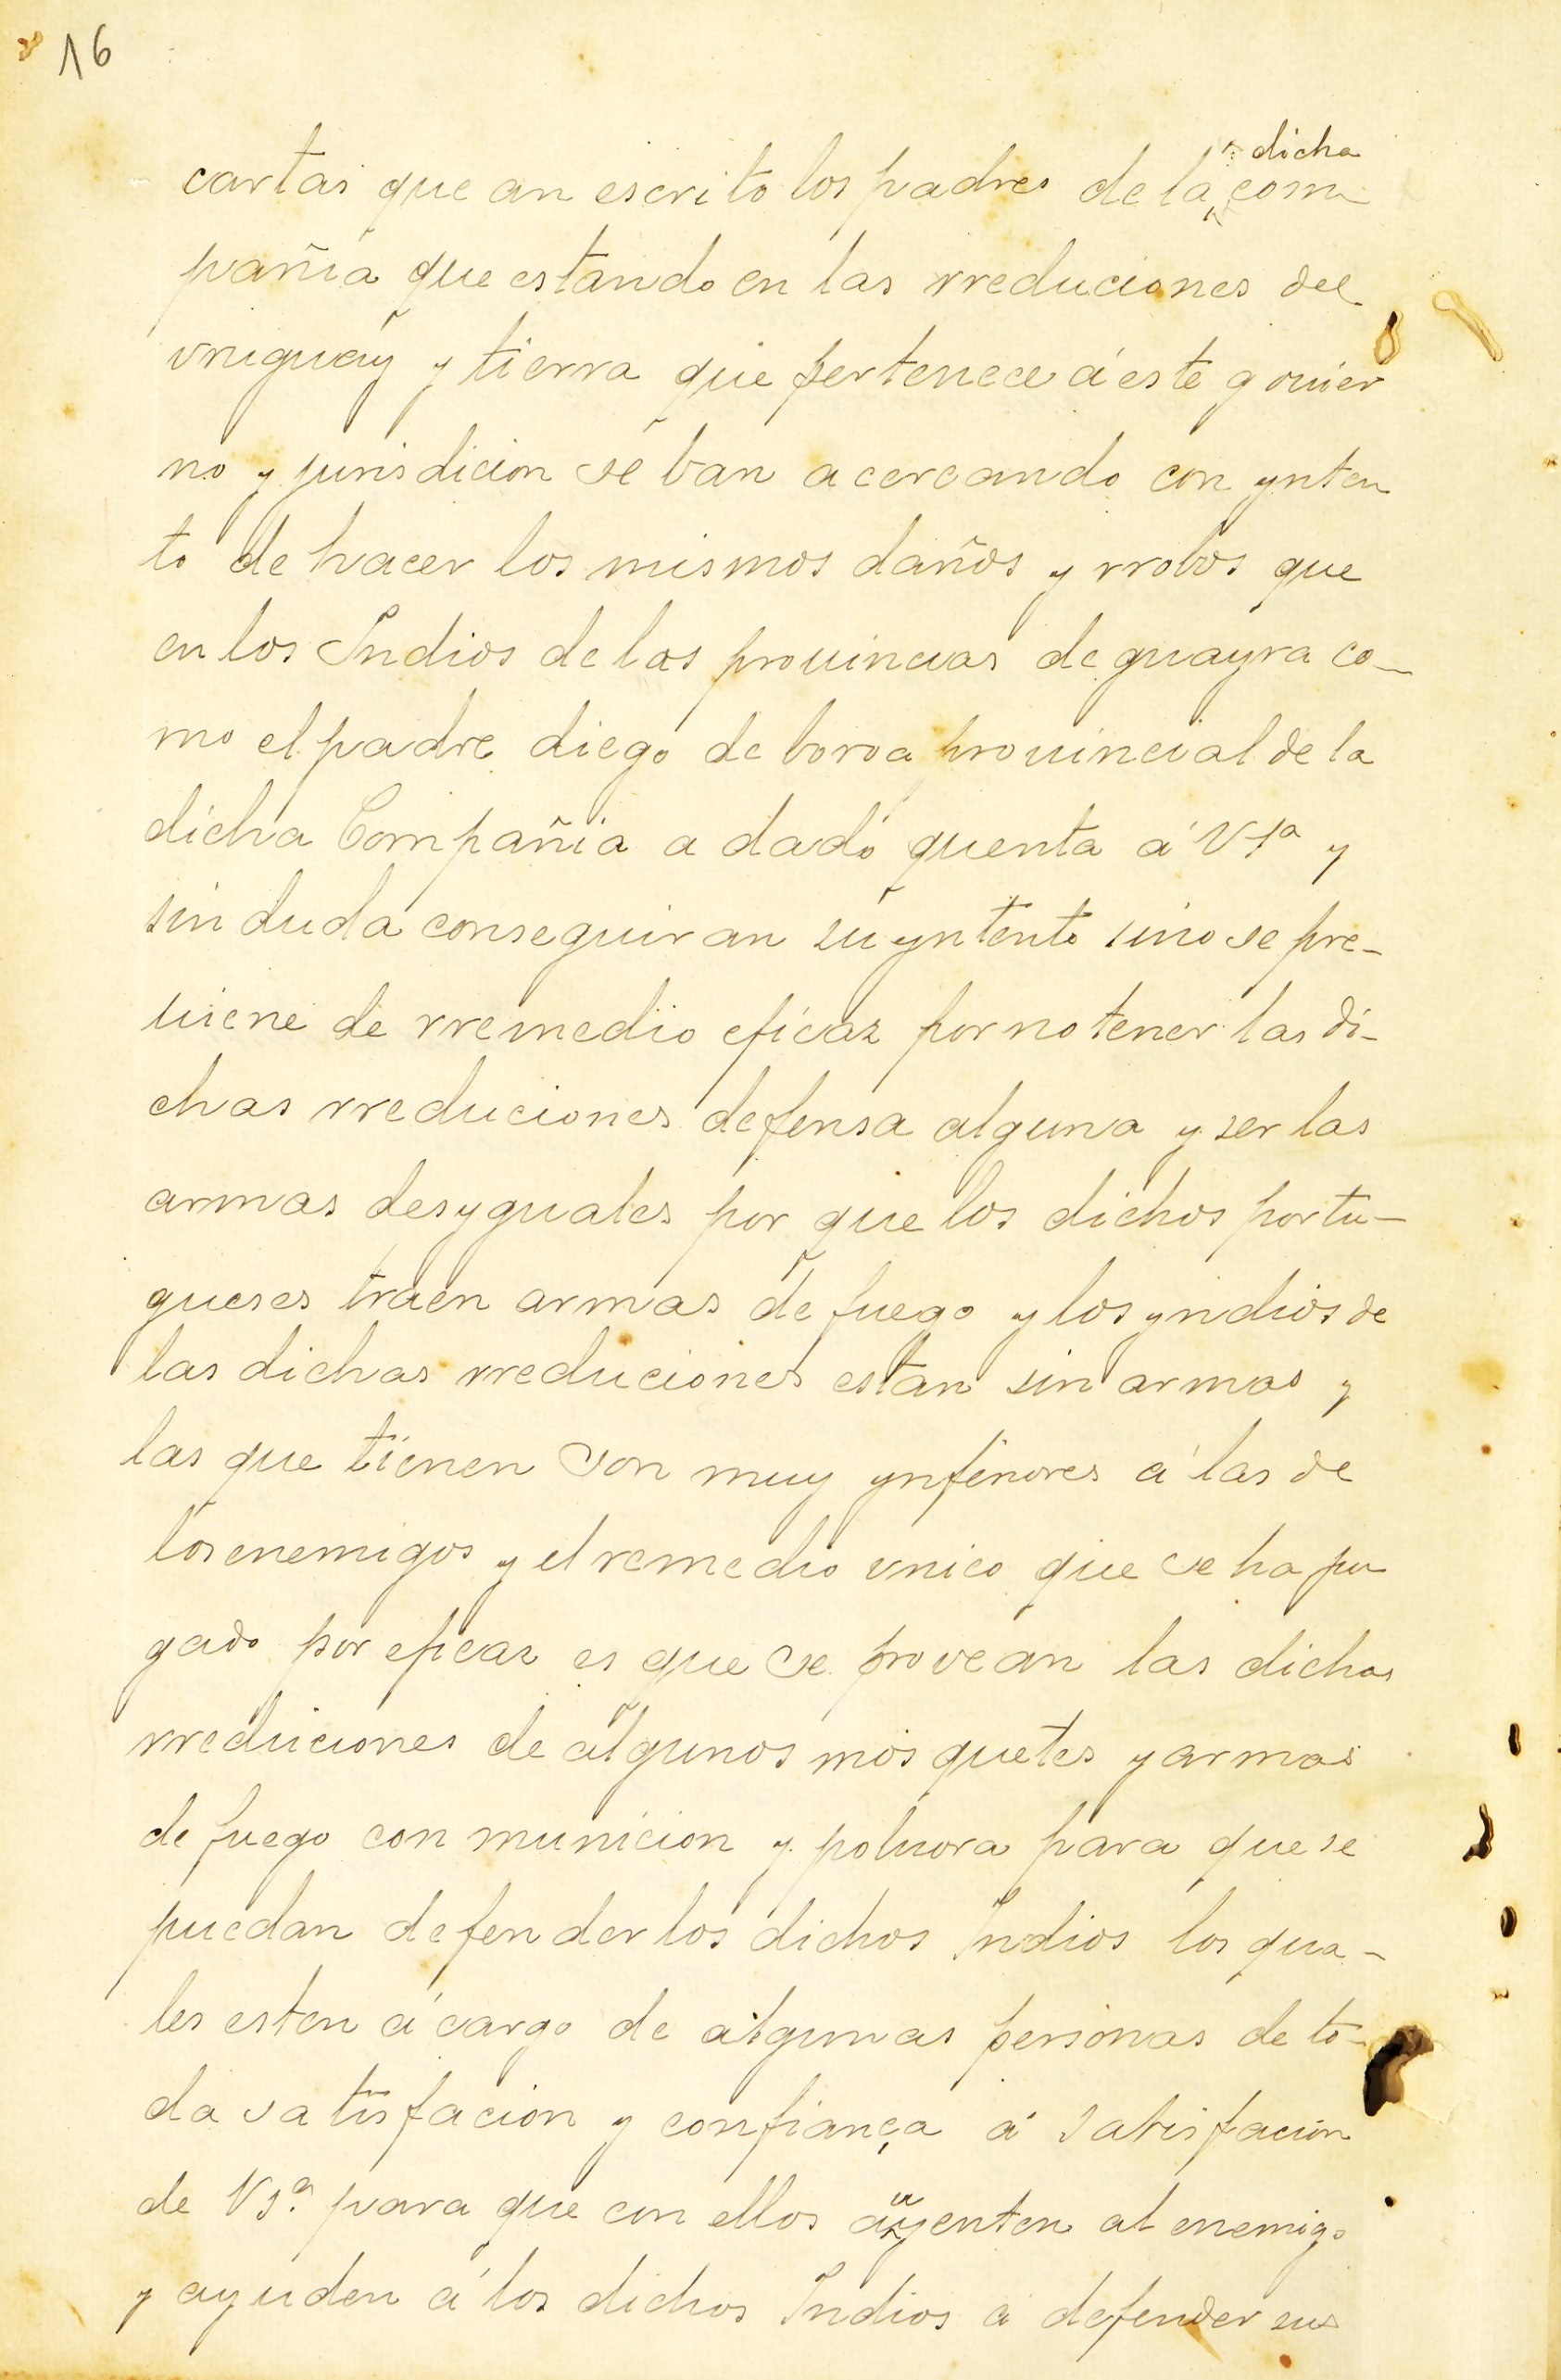 16
cartas que an escrito los padres de la dicha com
pañia que estando en las rreduciones del
vruguay y tierra que pertenece á este gouier
no y jurisdicion se ban acercando con ynten
to de hacer los mismos daños y rrobos que
en los Indios de las prouincias de guayra co-
mo el padre diego de boroa prouincial de la
dicha Compañia a dado quenta á VSª y
sin duda conseguiran su yntento sino se pre-
uiene de rremedio eficaz por no tener las di-
chas rreduciones defensa alguna y ser las
armas desyguales por que los dichos portu-
gueses traen armas de fuego y los yndios de
las dichas rreduciones estan sin armas y
las que tienen son muy ynferiores á las de
los enemigos y el remedio vnico que se ha juz
gado por eficaz es que se provean las dichas
rreduciones de algunos mosquetes y armas
de fuego con municion y poluora para que se
puedan defender los dichos Indios los qua-
les esten á cargo de algunas personas de to-
da satisfacion y confiança á satisfacion
de VSª. para que con ellos auyenten al enemigo
y ayuden á los dichos Indios á defender sus